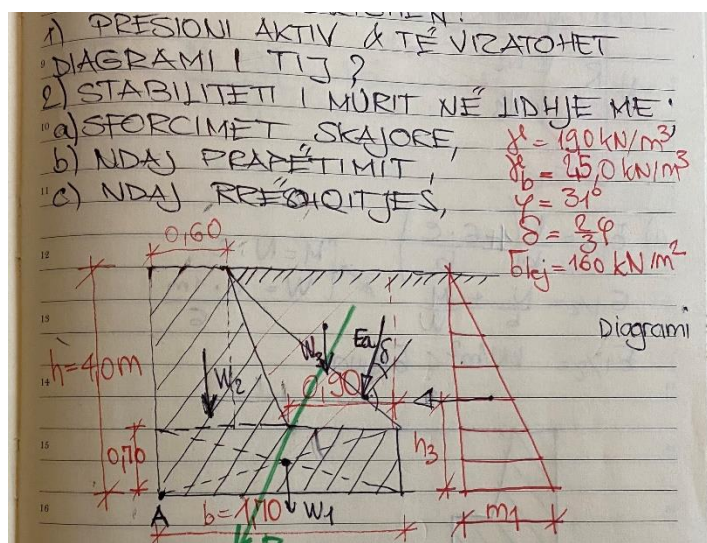 1) PRESIONI AKTIV & TË VIZATOHET
9 DIAGRAMI I TIJ ?
2) STABILITETI I MURIT NË LIDHJE ME:
10 a) SFORCIMET SKAJORE,
b) NDAJ PRAPËTIMIT,
11 c) NDAJ RRËSHQITJES,
γ = 190 kN/m³
γb = 25,0 kN/m³
φ = 31°
δ = 2/3 φ
σlej = 160 kN/m²
0,60
12
13
Diagrami
h = 4,0m
W2
W3
Ea
δ
0,90
14
15
0,70
h3
16
A
b = 1,70
W1
m1